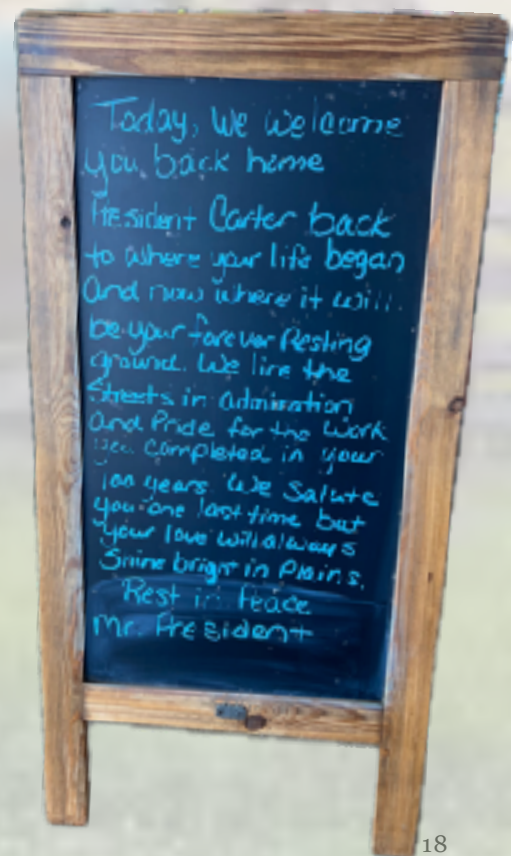 Today, We welcome
you back home
President Carter back
to where your life began
and now where it will
be your forever Resting
ground. We line the
Streets in admiration
and Pride for the work
you completed in your
100 years. We Salute
you one last time but
your love will always
Shine bright in Plains.
Rest in Peace
Mr. President
18